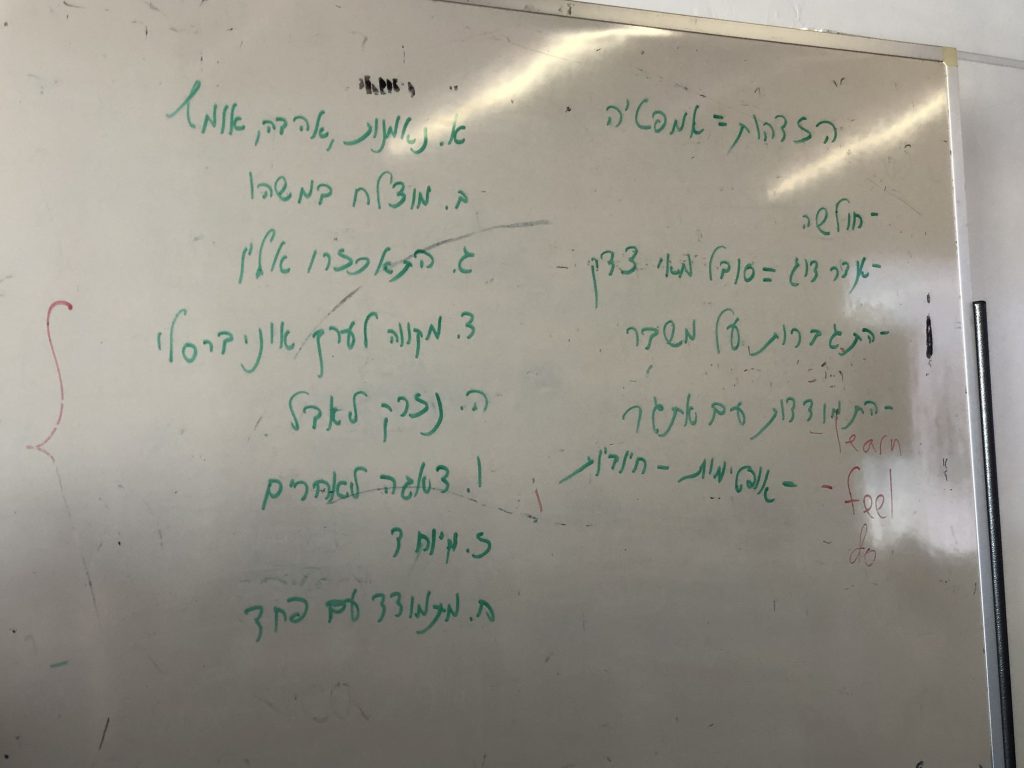 הזדהות = אמפטיה
- חולשה
- אנדר דוג = סובל מאי צדק
- התגברות על משבר
- התמודדות עם אתגר
- אופטימיות - חיוביות
learn
- feel
do
א. נאמנות, אהבה, אומץ
ב. מוצלח במשהו
ג. התאכזרו אליו
ד. מקווה לערך אוניברסלי
ה. נזרק לאבל
ו. דאגה לאחרים
ז. מיוחד
ח. מתמודד עם פחד